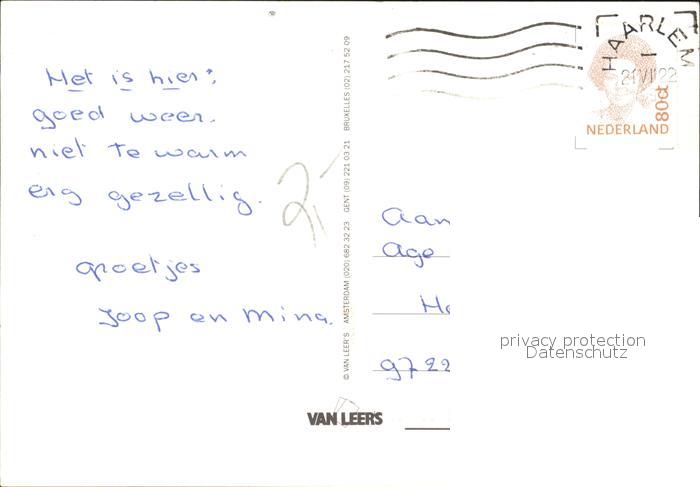 Het is hier:
goed weer.
niet te warm
erg gezellig.
groetjes
Joop en Mina.
2,-
© VAN LEER'S AMSTERDAM (020) 682 32 23 GENT (09) 221 03 21 BRUXELLES (02) 217 52 09
VAN LEER'S
HAARLEM
1
NEDERLAND
80ct
Aan
Age
Ha
9722
privacy protection
Datenschutz